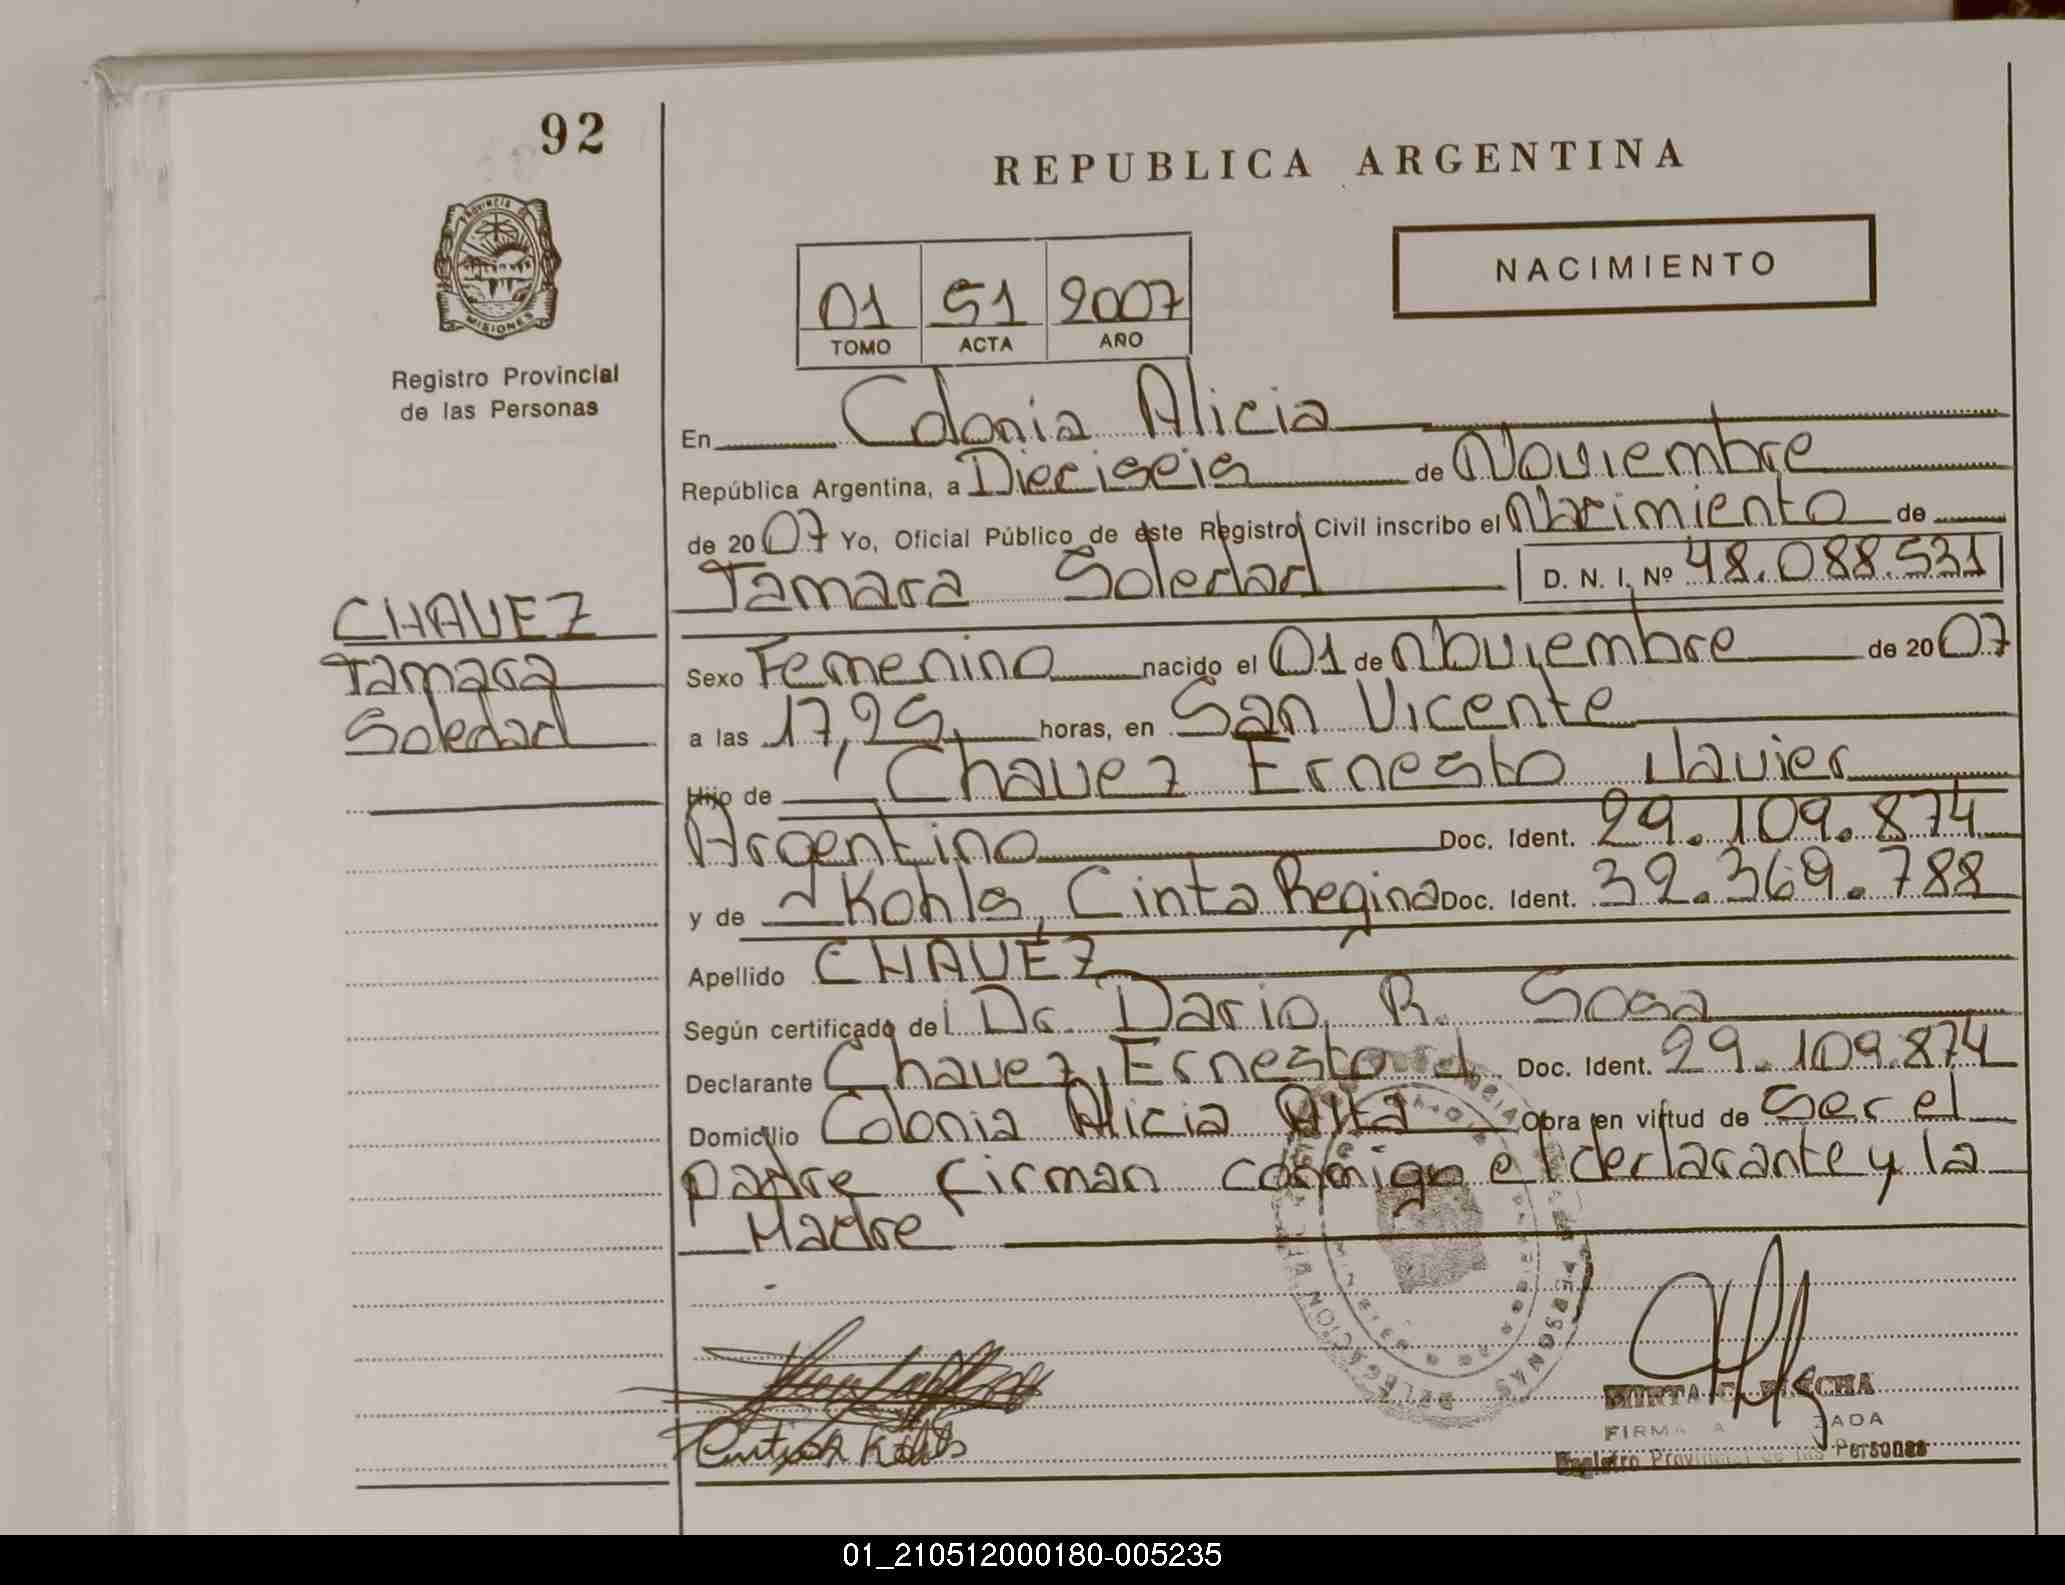 92
REPUBLICA ARGENTINA
PROVINCIA DE
MISIONES
Registro Provincial
de las Personas
01 51 2007
TOMO ACTA AÑO
NACIMIENTO
En Colonia Alicia
República Argentina, a Dieciseis de Noviembre
de 2007 Yo, Oficial Público de este Registro Civil inscribo el Nacimiento de
Tamara Soledad D. N. I. Nº 48.088.531
CHAVEZ
Tamara
Soledad
Sexo Femenino nacido el 01 de Noviembre de 2007
a las 17,25 horas, en San Vicente
Hijo de Chavez Ernesto Javier
Argentino Doc. Ident. 29.109.874
y de Kohls, Cinta Regina Doc. Ident. 32.369.788
Apellido CHAVEZ
Según certificado del Dr. Dario R. Sosa
Declarante Chavez, Ernesto J. Doc. Ident. 29.109.874
Domicilio Colonia Alicia Alta Obra en virtud de ser el
padre firman conmigo el declarante y la
Madre
DELEGACION PERSONAS
FIRMA
Registro Provincial de las Personas
01_210512000180-005235